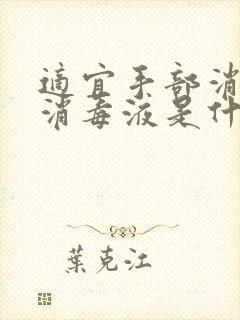 適宜手部消
消毒液是什
葉克江